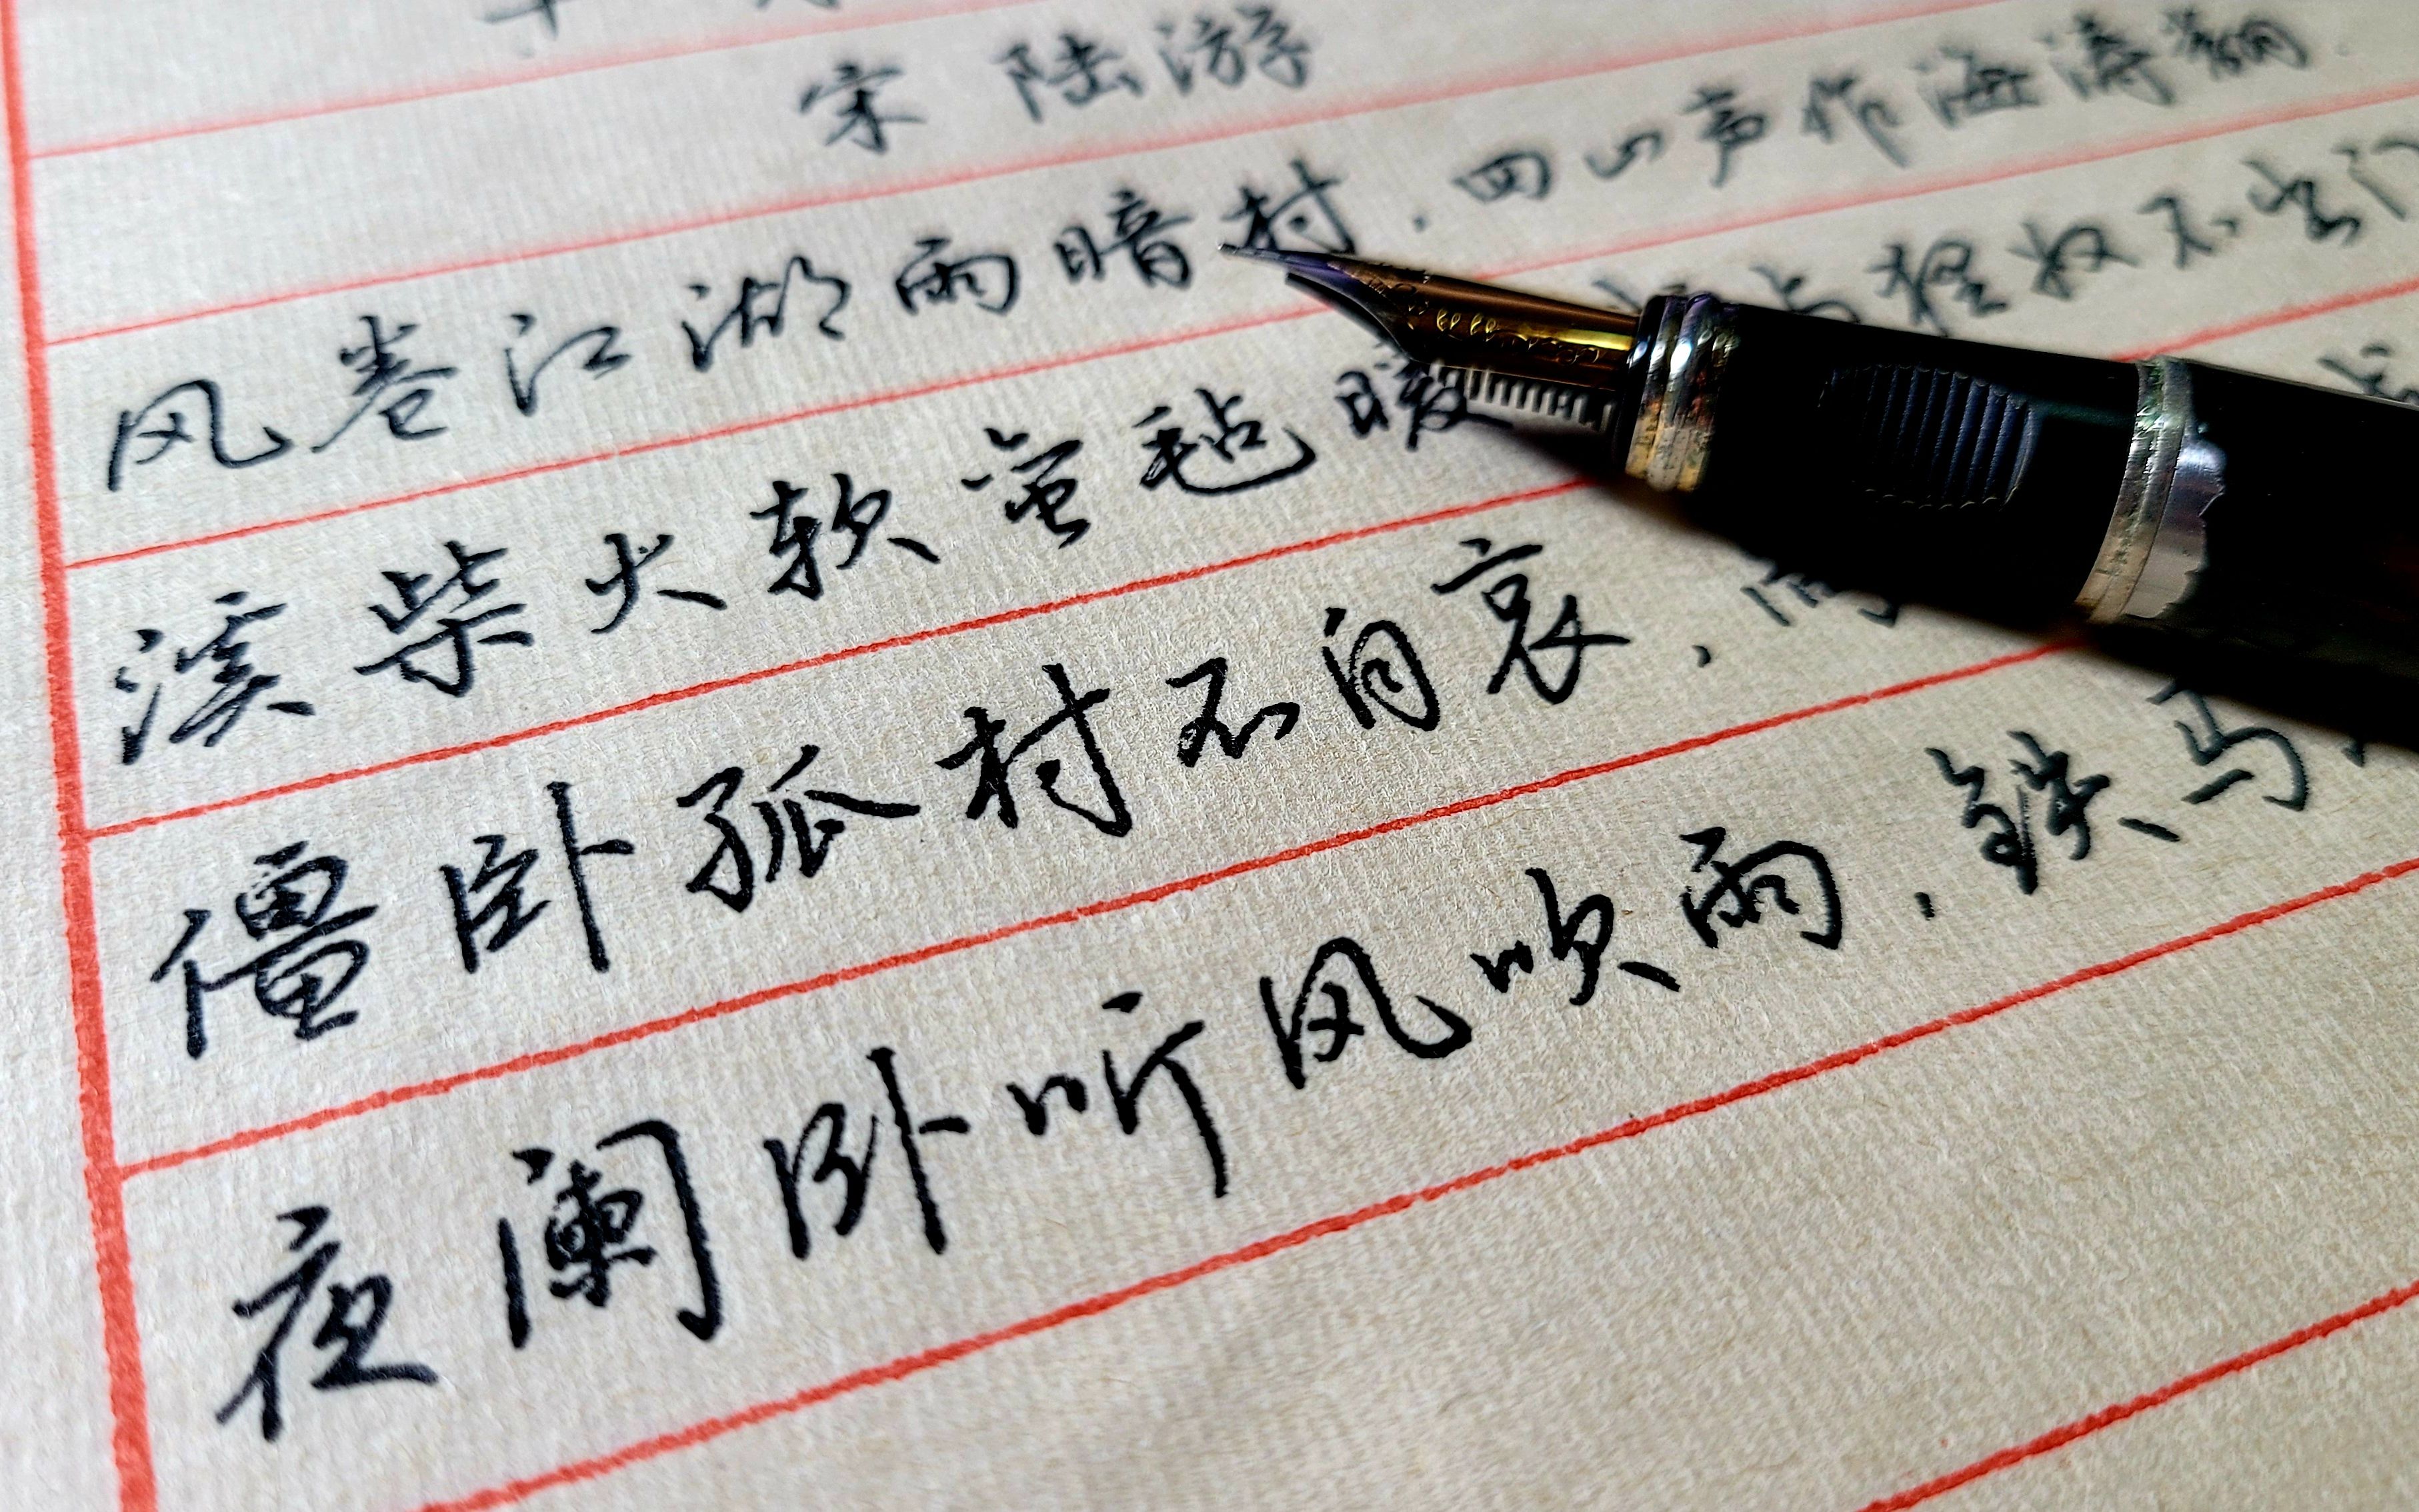 宋 陆游
风卷江湖雨暗村，四山声作海涛翻.
溪柴火软蛮毡暖 与狸奴不出门
僵卧孤村不自哀，
夜阑卧听风吹雨，铁马